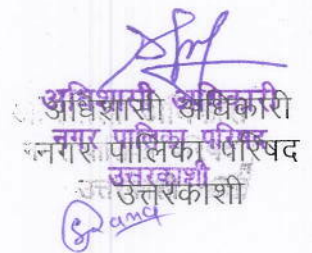 अधिशासी अधिकारी
नगर पालिका परिषद
उत्तरकाशी
अधिशासी अधिकारी
नगर पालिका परिषद
उत्तरकाशी